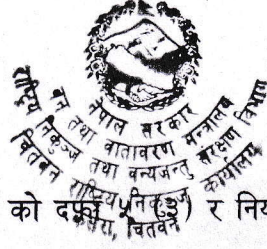 नेपाल सरकार
वन तथा वातावरण मन्त्रालय
राष्ट्रिय निकुञ्ज तथा वन्यजन्तु संरक्षण विभाग
चितवन राष्ट्रिय निकुञ्ज कार्यालय
कसरा, चितवन
को दफा ५ (३) र निय